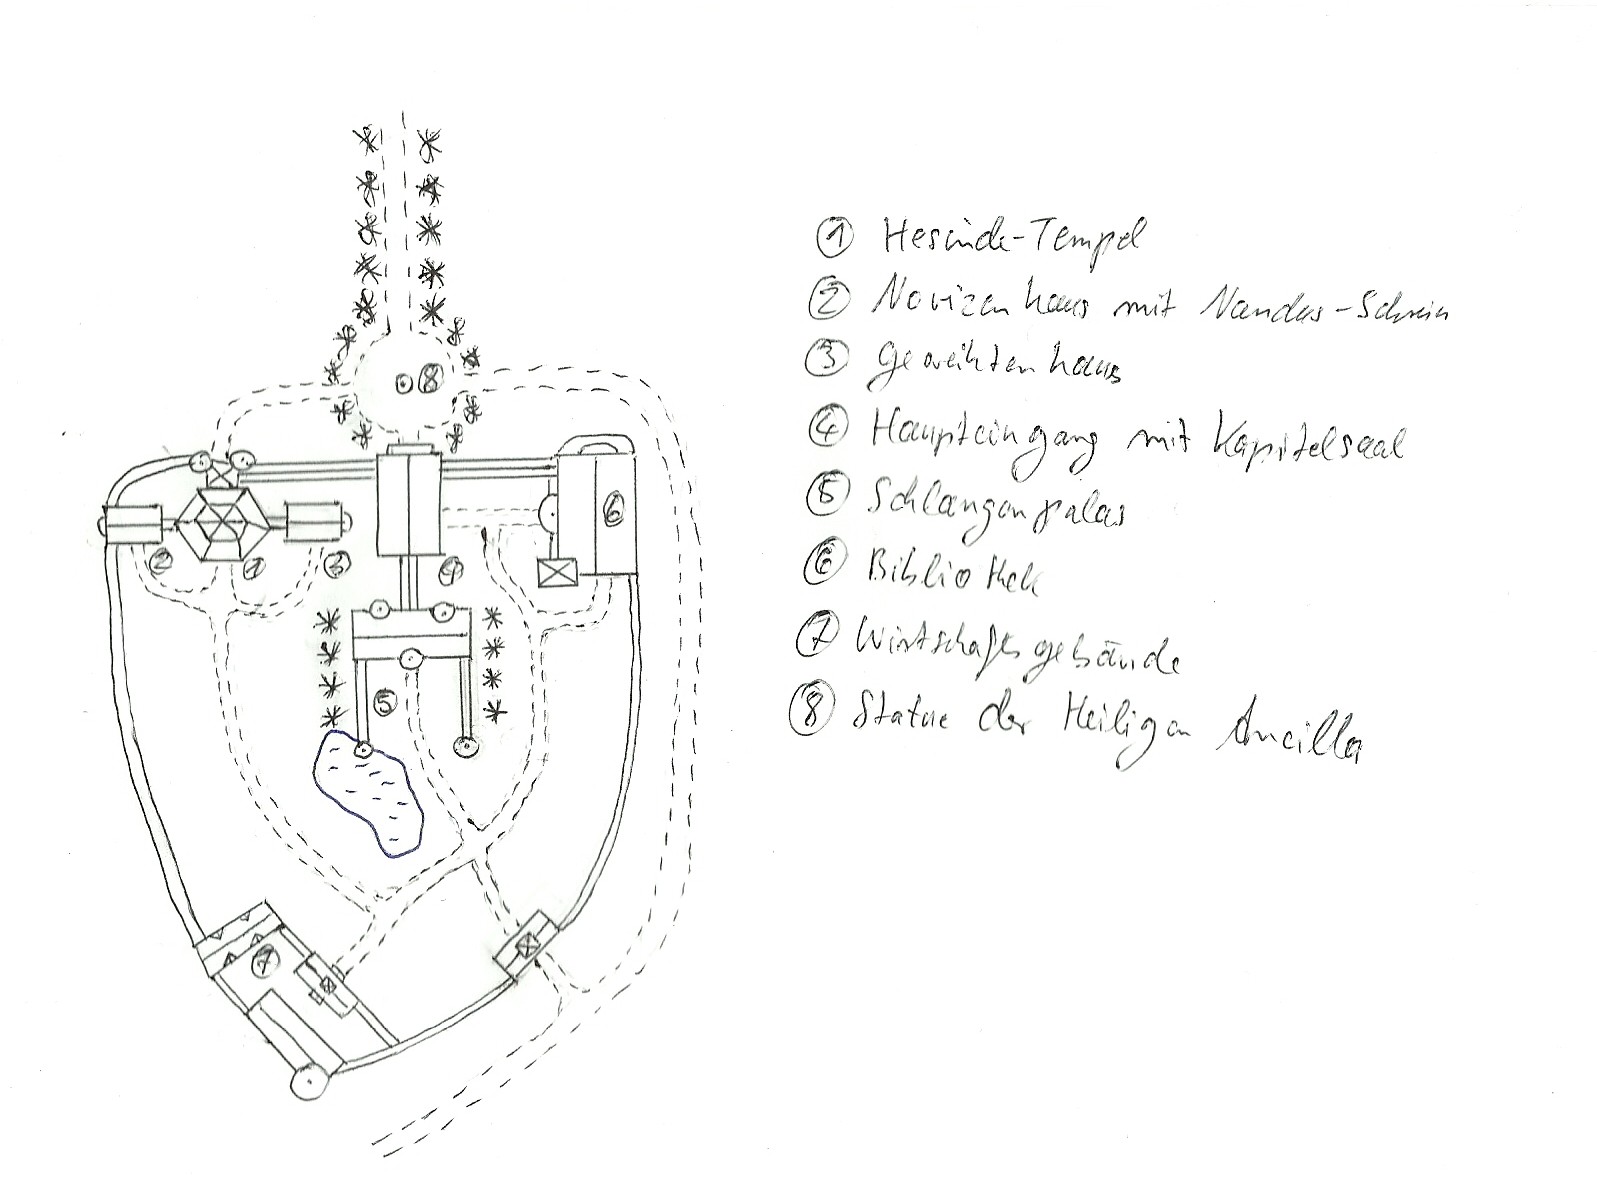 8
6
2
1
3
4
5
7
① Hesinde-Tempel
② Novizenhaus mit Nandus-Schrein
③ Geweihtenhaus
④ Haupteingang mit Kapitelsaal
⑤ Schlangenpalas
⑥ Bibliothek
⑦ Wirtschaftsgebäude
⑧ Statue der Heiligen Ancilla